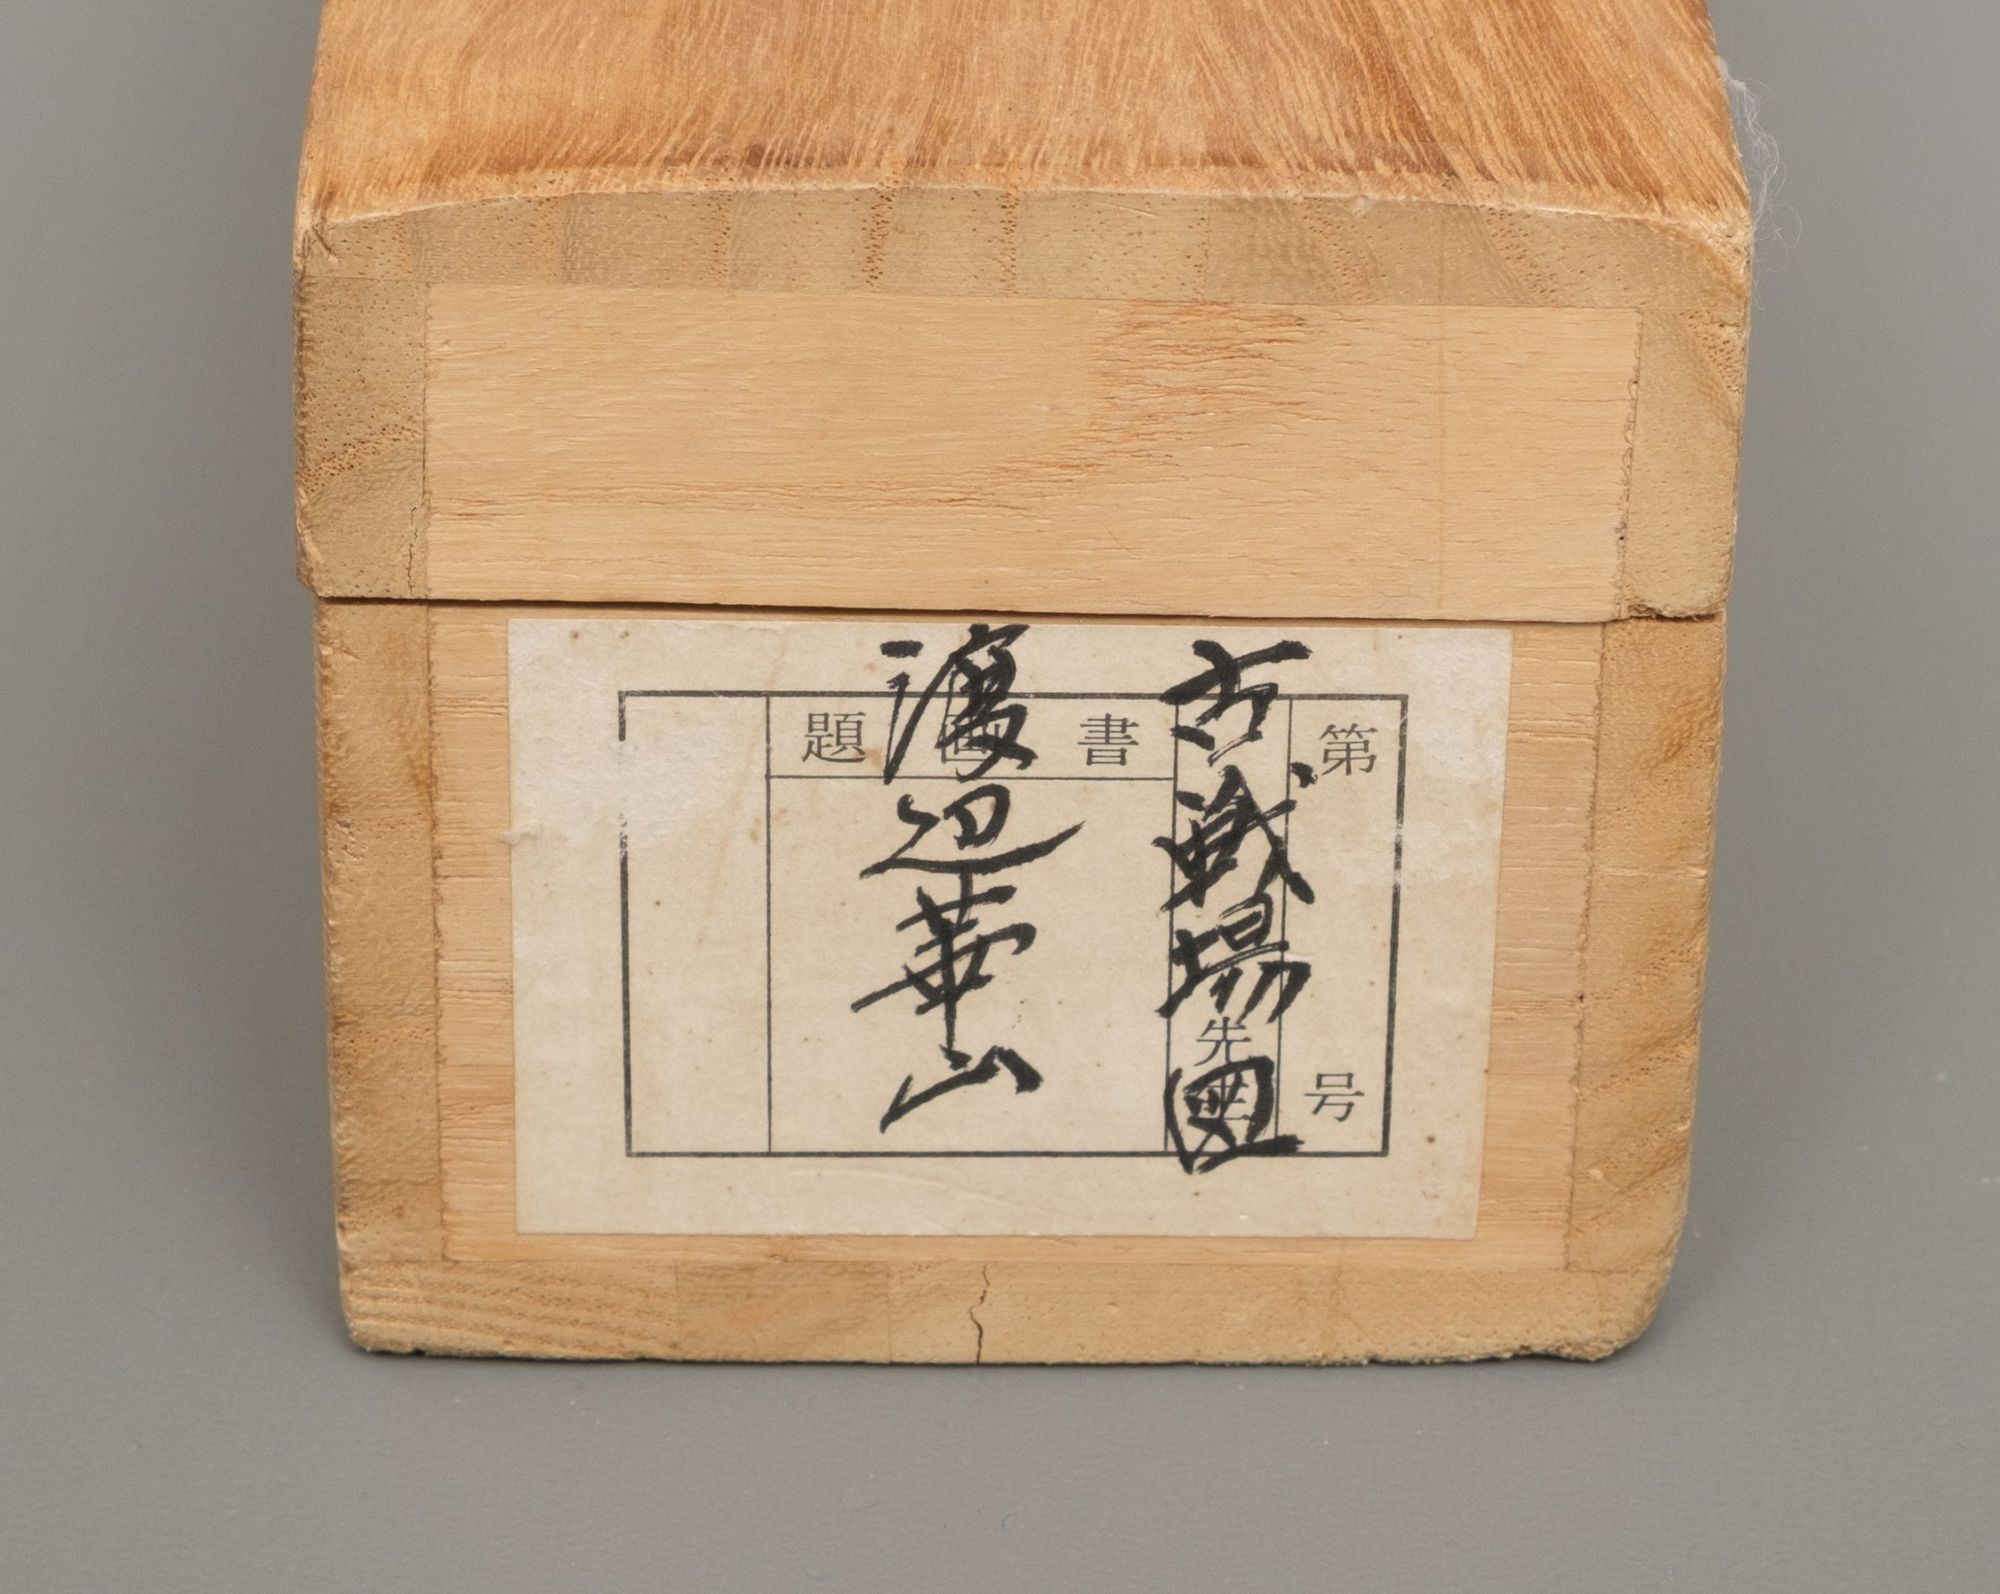 古戦場図
渡辺華山
第 号
書画題
先生